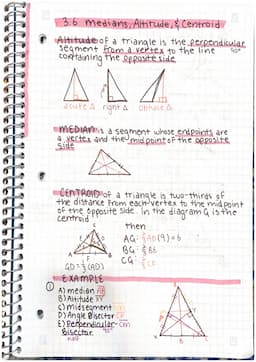 3.6 Medians, Altitude, & Centroid
Altitude of a triangle is the perpendicular 90°
segment from a vertex to the line
containing the opposite side
acute Δ right Δ obtuse Δ
MEDIAN is a segment whose endpoints are
a vertex and the midpoint of the opposite
side
CENTROID of a triangle is two-thirds of
the distance from each vertex to the midpoint
of the opposite side. In the diagram G is the
centroid
then
AG: ⅔AD(9)=6
BG: ⅔BE
CG: ⅔CF
EXAMPLE
A) median
B) Altitude
C) midsegment
D) Angle Bisector
E) Perpendicular
Bisector